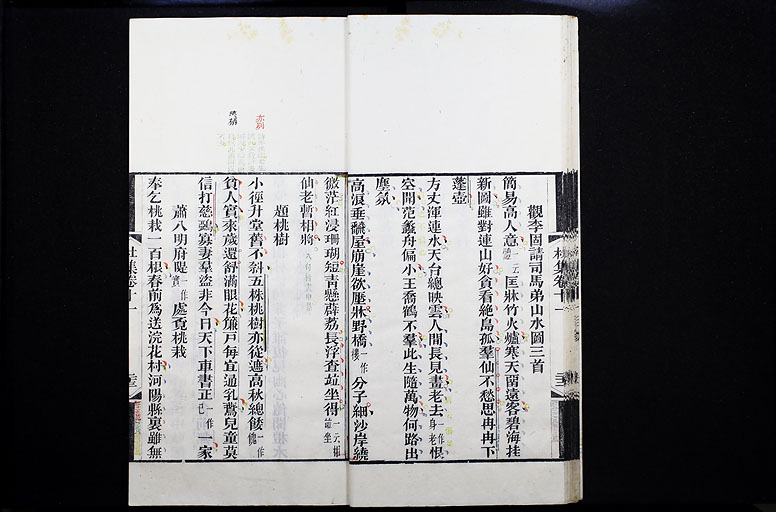 觀李固請司馬弟山水圖三首
簡易高人意一云匡牀竹火爐寒天留遠客碧海挂
新圖雖對連山好貪看絕島孤羣仙不愁思冉冉下
蓬壺
方丈渾連水天台總映雲人間長見畫老去一作身老恨
空聞范蠡舟偏小王喬鶴不羣此生隨萬物何路出
塵氛
高浪垂翻屋崩崖欲壓牀野橋一作樓分子細沙岸繞
微茫紅浸珊瑚短青懸薜荔長浮查並坐得一云相並坐
仙老暫相將
題桃樹
小徑升堂舊不斜五株桃樹亦從遮高秋總餧一作饋
貧人實來歲還舒滿眼花簾戶每宜通乳鷰兒童莫
信打慈鴉寡妻羣盜非今日天下車書正一作已一家
蕭八明府隄一作實處覓桃栽
奉乞桃栽一百根春前爲送浣花村河陽縣裏雖無
杜集卷十一
杜集卷十一